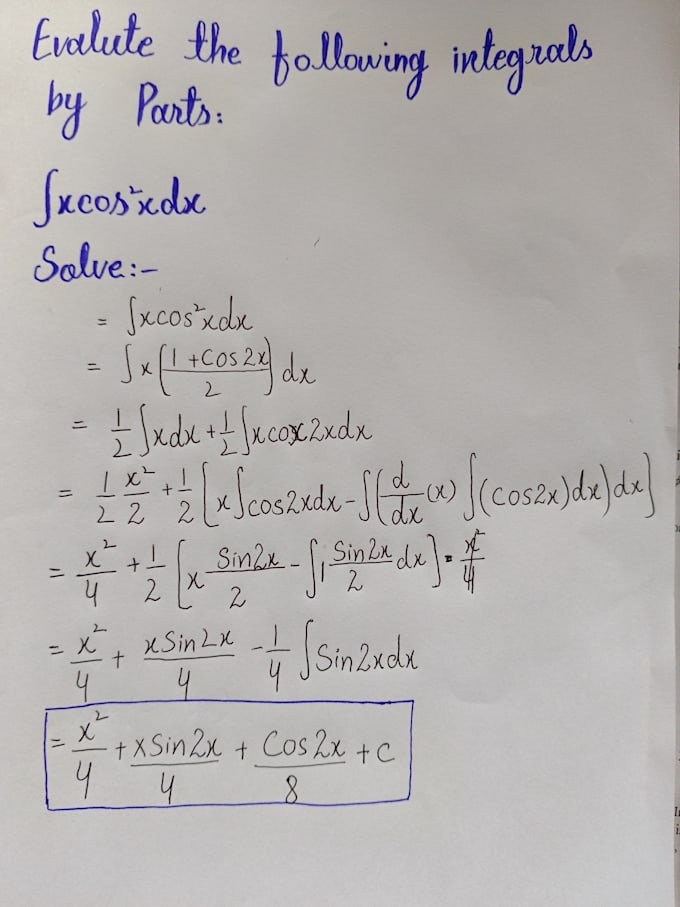 Evalute the following integrals
by Parts:
∫xcos²xdx
Solve:-
= ∫xcos²xdx
= ∫x(1+Cos2x/2)dx
= 1/2∫xdx+1/2∫xcox2xdx
= 1/2 x²/2 + 1/2[x∫cos2xdx-∫(d/dx(x)∫(cos2x)dx)dx]
= x²/4 + 1/2[x Sin2x/2 - ∫1 Sin2x/2 dx]
= x²/4 + xSin2x/4 - 1/4∫Sin2xdx
= x²/4 + xSin2x/4 + Cos2x/8 + c